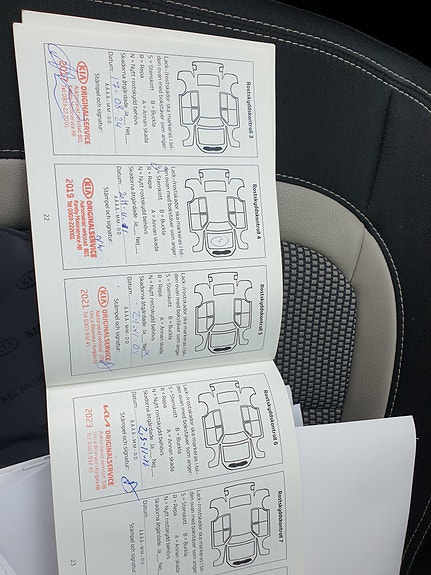 Rostskyddskontroll 3
Lack-/rostskador ska markeras i bil-
den ovan med bokstäver som anger
S = Stenskott B = Buckla
R = Repa A = Annan skada
N = Nytt rostskydd behövs
Skadorna åtgärdade Ja Nej
Datum: 17-08-24
ÅÅÅÅ-MM-DD
Stämpel och signatur:
KIA ORIGINALSERVICE
Rostskyddskontroll 4
Lack-/rostskador ska markeras i bil-
den ovan med bokstäver som anger
S = Stenskott B = Buckla
R = Repa A = Annan skada
N = Nytt rostskydd behövs
Skadorna åtgärdade Ja Nej
Datum:
ÅÅÅÅ-MM-DD
Stämpel och signatur:
KIA ORIGINALSERVICE
2019
22
Rostskyddskontroll 5
Lack-/rostskador ska markeras i bil-
den ovan med bokstäver som anger
S = Stenskott B = Buckla
R = Repa A = Annan skada
N = Nytt rostskydd behövs
Skadorna åtgärdade Ja Nej
Datum:
ÅÅÅÅ-MM-DD
Stämpel och signatur:
KIA ORIGINALSERVICE
2021
Rostskyddskontroll 6
Lack-/rostskador ska markeras i bil-
den ovan med bokstäver som anger
S = Stenskott B = Buckla
R = Repa A = Annan skada
N = Nytt rostskydd behövs
Skadorna åtgärdade Ja Nej
Datum:
ÅÅÅÅ-MM-DD
Stämpel och signatur:
KIA ORIGINALSERVICE
2023
Rostskyddskontroll 7
Lack-/rostskador ska markeras i bil-
den ovan med bokstäver som anger
S = Stenskott B = Buckla
R = Repa A = Annan skada
N = Nytt rostskydd behövs
Skadorna åtgärdade Ja Nej
Datum:
ÅÅÅÅ-MM-DD
Stämpel och signatur:
23